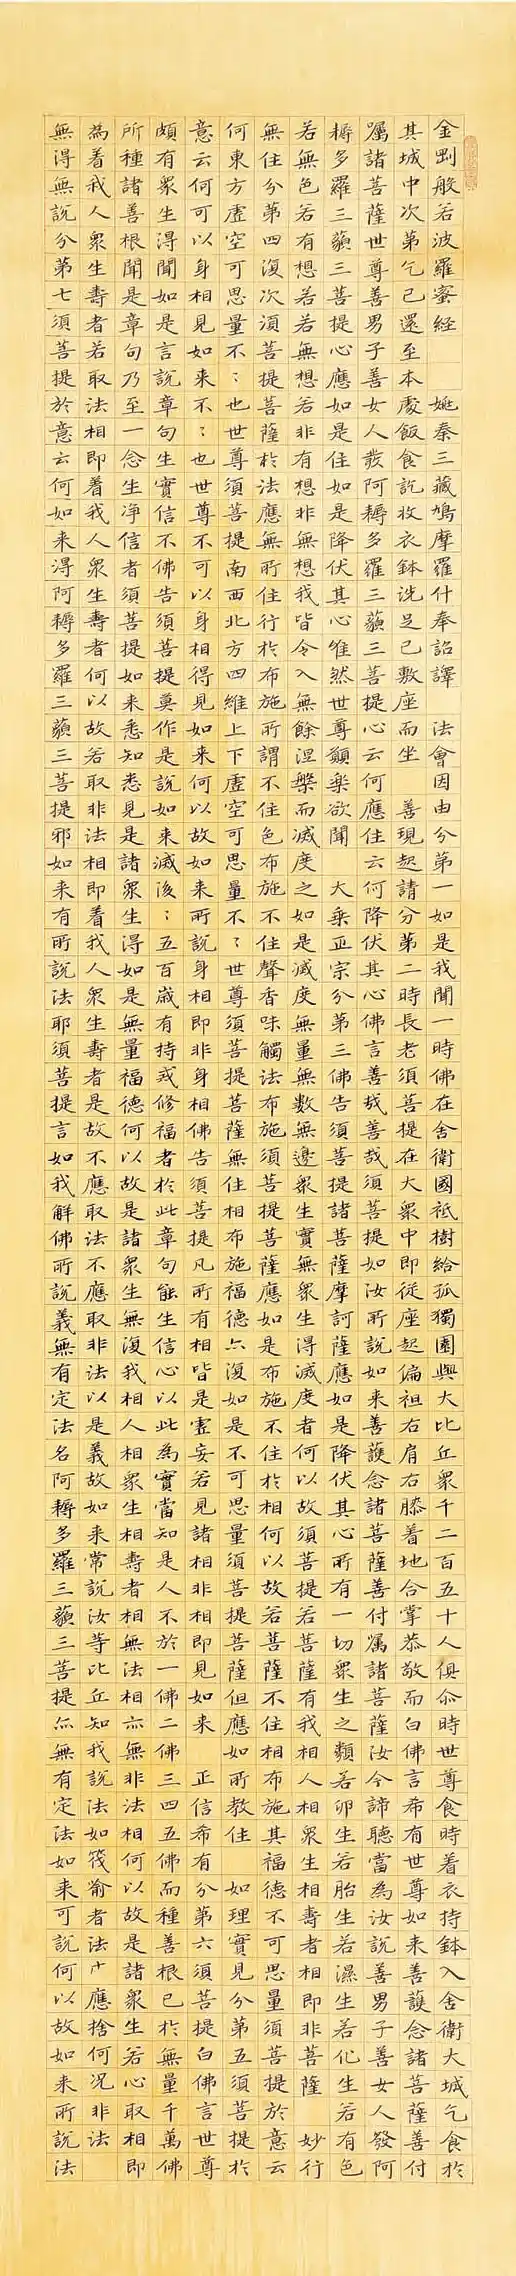 金剛般若波羅蜜經 姚秦三藏鳩摩羅什奉詔譯 法會因由分第一如是我聞一時佛在舍衛國祇樹給孤獨園與大比丘眾千二百五十人俱尒時世尊食時着衣持鉢入舍衛大城乞食於
其城中次第乞已還至本處飯食訖收衣鉢洗足已敷座而坐 善現起請分第二時長老須菩提在大眾中即從座起偏袒右肩右膝着地合掌恭敬而白佛言希有世尊如來善護念諸菩薩善付
囑諸菩薩世尊善男子善女人發阿耨多羅三藐三菩提心云何應住云何降伏其心佛言善哉善哉須菩提如汝所說如來善護念諸菩薩善付囑諸菩薩汝今諦聽當為汝說善男子善女人發阿
耨多羅三藐三菩提心應如是住如是降伏其心唯然世尊願樂欲聞 大乘正宗分第三佛告須菩提諸菩薩摩訶薩應如是降伏其心所有一切眾生之類若卵生若胎生若濕生若化生若有色
若無色若有想若若無想若非有想非無想我皆令入無餘涅槃而滅度之如是滅度無量無數無邊眾生實無眾生得滅度者何以故須菩提若菩薩有我相人相眾生相壽者相即非菩薩 妙行
無住分第四復次須菩提菩薩於法應無所住行於布施所謂不住色布施不住聲香味觸法布施須菩提菩薩應如是布施不住於相何以故若菩薩不住相布施其福德不可思量須菩提於意云
何東方虛空可思量不：也世尊須菩提南西北方四維上下虛空可思量不：世尊須菩提菩薩無住相布施福德亦復如是不可思量須菩提菩薩但應如所教住 如理實見分第五須菩提於
意云何可以身相見如來不：也世尊不可以身相得見如來何以故如來所說身相即非身相佛告須菩提凡所有相皆是虛妄若見諸相非相即見如來 正信希有分第六須菩提白佛言世尊
頗有眾生得聞如是言說章句生實信不佛告須菩提莫作是說如來滅後：五百歲有持戒修福者於此章句能生信心以此為實當知是人不於一佛二佛三四五佛而種善根已於無量千萬佛
所種諸善根聞是章句乃至一念生淨信者須菩提如來悉知悉見是諸眾生得如是無量福德何以故是諸眾生無復我相人相眾生相壽者相無法相亦無非法相何以故是諸眾生若心取相即
為着我人眾生壽者若取法相即着我人眾生壽者何以故若取非法相即着我人眾生壽者是故不應取法不應取非法以是義故如來常說汝等比丘知我說法如筏喻者法應捨何況非法
無得無說分第七須菩提於意云何如來得阿耨多羅三藐三菩提耶如來有所說法耶須菩提言如我解佛所說義無有定法名阿耨多羅三藐三菩提亦無有定法如來可說何以故如來所說法